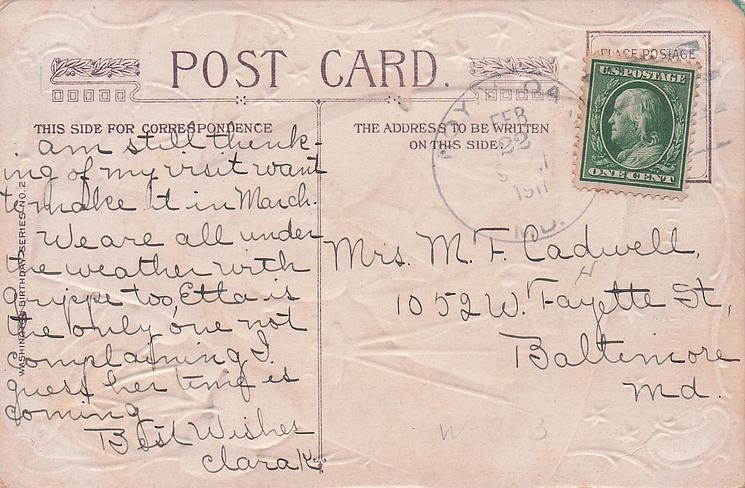 POST CARD.
PLACE POSTAGE
U.S. POSTAGE
ONE CENT
THIS SIDE FOR CORRESPONDENCE
THE ADDRESS TO BE WRITTEN
ON THIS SIDE.
FEB
22
1911
MD.
WASHINGTON BIRTHDAY SERIES NO. 2
am still think-
ing of my visit want
to make it in March.
We are all under
the weather with
grippe too, Etta is
the only one not
complaining I
guess her time is
coming
Best Wishes
Clara K.
Mrs. M. F. Cadwell,
1052 W. Fayette St,
Baltimore
Md.